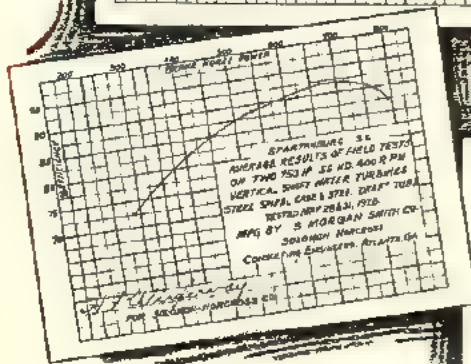 200 300 400 500 600 700 800
BRAKE HORSE POWER
EFFICIENCY
95
90
85
80
75
70
SPARTANBURG S.C.
AVERAGE RESULTS OF FIELD TESTS
ON TWO 753 HP 56 HD. 400 RPM
VERTICAL SHAFT WATER TURBINES
STEEL SPIRAL CASE & STEEL DRAFT TUBE
TESTED MAY 28 & 31, 1926
MFG BY S MORGAN SMITH CO
SOLOMON NORCROSS
CONSULTING ENGINEERS, ATLANTA, GA
FOR SOLOMON-NORCROSS CO